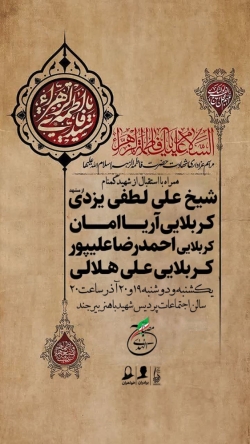 السلام علیک یا فاطمة الزهرا
مراسم عزاداری شهادت حضرت فاطمه الزهرا سلام الله علیها
همراه با استقبال از شهید گمنام
شیخ علی لطفی یزدی
کربلایی آریا امان
کربلایی احمدرضا علیپور
کربلایی علی هلالی
یکشنبه و دوشنبه ۱۹ و ۲۰ آذر ساعت ۲۰
سالن اجتماعات پردیس شهید باهنر بیرجند
برادران
خواهران